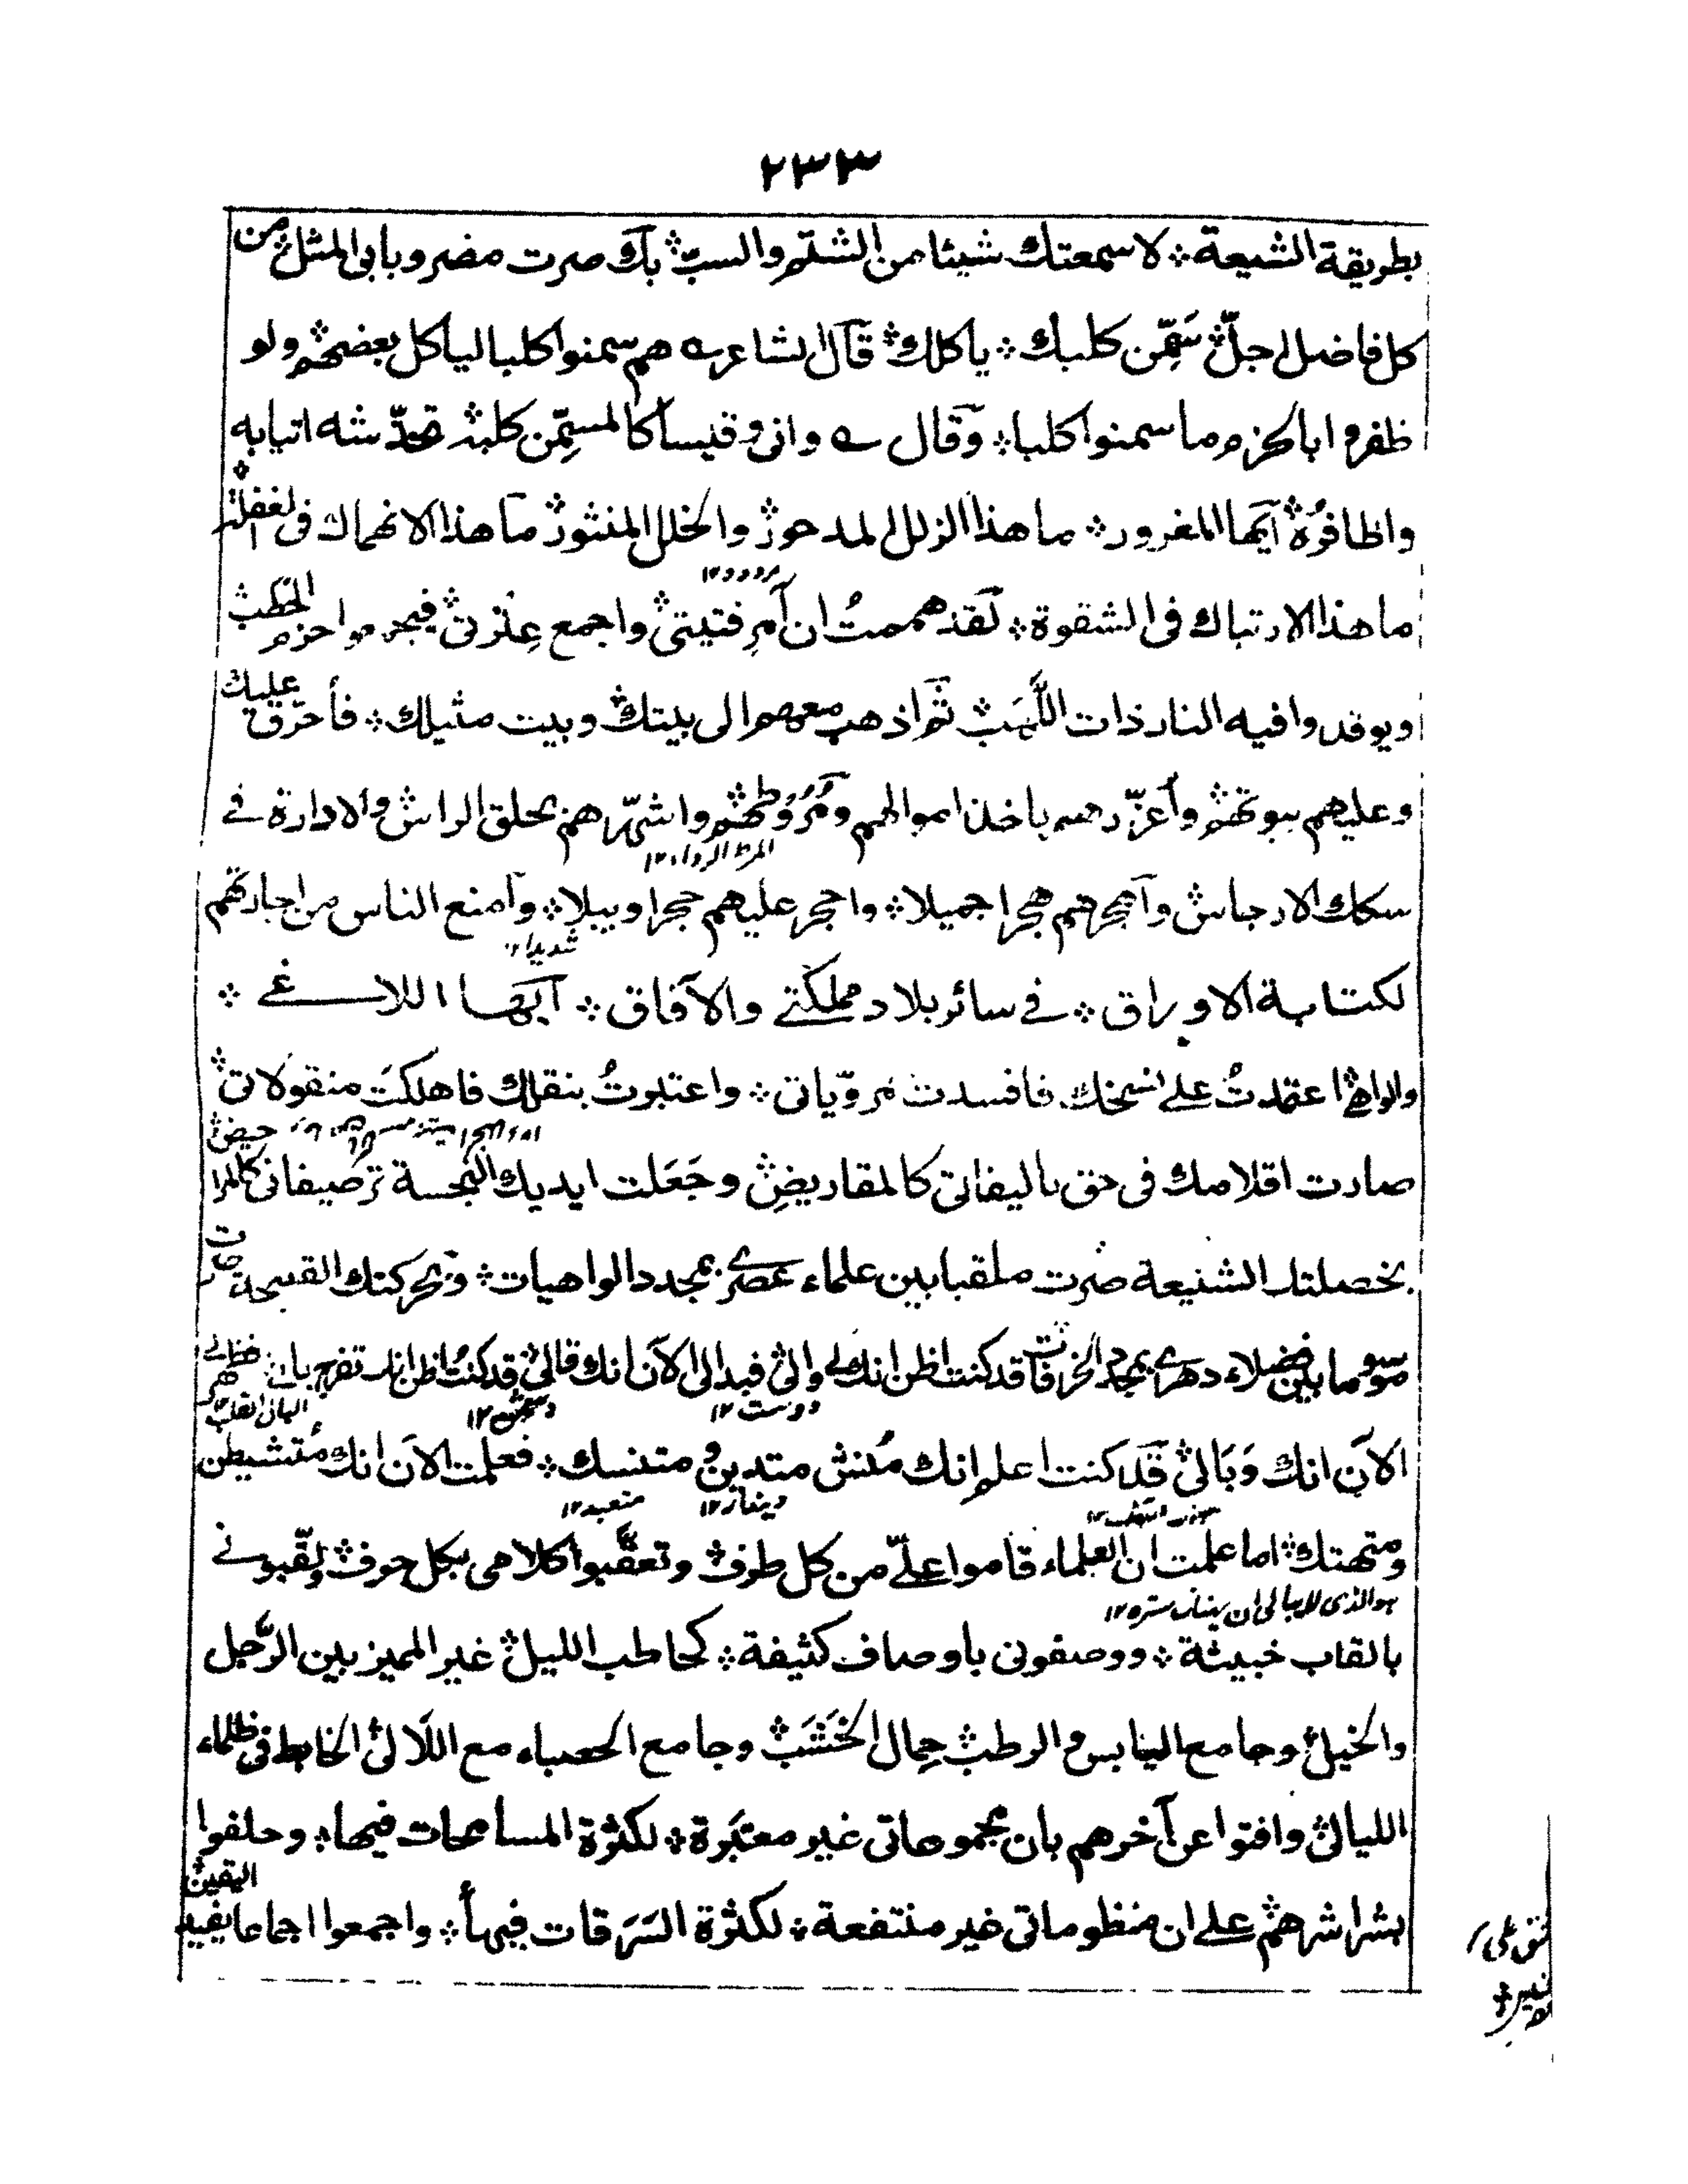 ٢٣٣
بطريقة الشيعة ؞ لاسمعتك شيئا من الشتم والسب ؞ بك صرت مضروبا بى المثل ؞ من
كل فاضل اجلّ ؞ سَمِّن كلبك ؞ ياكلك ؞ قال الشاعر ؎ هم سمنوا كلبا لياكل بعضهم ؞ ولو
ظفروا بالحزم ما سمنوا كلبا ؞ وقال ؎ وانى وقيسا كالمسمِّن كلبه ؞ تخدّشه انيابه
واظافره ؞ ايها المغرور ؞ ما هذا الزلل المدحور ؞ والخلل المنثور ؞ ما هذا الانهماك فى الغفلة ؞
مردود ١٢
ما هذا الارتباك فى الشقوة ؞ لقد هممتُ ان آمر فتيتى ؞ واجمع عترتى ؞ فيجمعوا حزم الحطب ؞
ويوقدوا فيه النار ذات اللَّهَب ؞ ثم اذهب معهم الى بيتك ؞ وبيت مثيلك ؞ فأحرّق عليك
وعليهم بيوتهم ؞ وأعزّرهم باخذ اموالهم ومُرُوطهم ؞ واشهّرهم بحلق الراس ؞ والادارة فى
المرط الرداء ١٢
سكك الارجاس ؞ وآهجرهم هجرا جميلا ؞ واحجر عليهم حجرا وبيلا ؞ وآمنع الناس من اجارتهم
شديدا ١٢
لكتابة الاوراق ؞ فى سائر بلاد مملكتى والآفاق ؞ ايها اللاغى ؞
والواهى ؞ اعتمدتُ على نسخك فافسدت مروّياتى ؞ واعتبرتُ بنقلك فاهلكت منقولاتى ؞
صارت اقلامك فى حق تاليفاتى كالمقاريض ؞ وجَعَلت ايديك النجسة ترصيفاتى كالمراحيض ؞
بخصلتك الشنيعة صرت ملقبا بين علماء عصرى بمجدد الواهيات ؞ وبحركتك القبيحة صرت
موسوما بين فضلاء دهرى بمجدد الخرافات ؞ قد كنت اظن انك لى والى ؞ فبدا لى الآن انك قالى ؞ قد كنتُ اظن انك تفرح بالى ؞ فظهر لى
دوست ١٢ دشمن ١٢ البال القلب ١٢
الآن انك وَبَالى ؞ قد كنت اعلم انك مُنش متدين ومتنسك ؞ فعلمت الآن انك مُتشيطن
ديندار ١٢ متعبد ١٢
ومتهتك ؞ اما علمت ان العلماء قاموا علىّ من كل طرف ؞ وتعقَّبوا كلامى بكل حرف ؞ ولقّبونى
هو الذى لا يبالى ان يهتك ستره ١٢
بالقاب خبيثة ؞ ووصفونى باوصاف كثيفة ؞ كحاطب الليل ؞ غير المميز بين الرَّجل
والخيل ؞ وجامع اليابس والرطب ؞ حمال الخَشَب ؞ وجامع الحصباء مع اللآلى ؞ الخابط فى ظلماء
الليالى ؞ وافتوا عن آخرهم بان مجموعاتى غير معتبَرة ؞ لكثرة المسامحات فيها ؞ وحلفوا
بشراشرهم ؞ على ان منظوماتى غير منتفعة ؞ لكثرة السَرَقات فيها ؞ واجمعوا اجماعا يفيد اليقين ؞